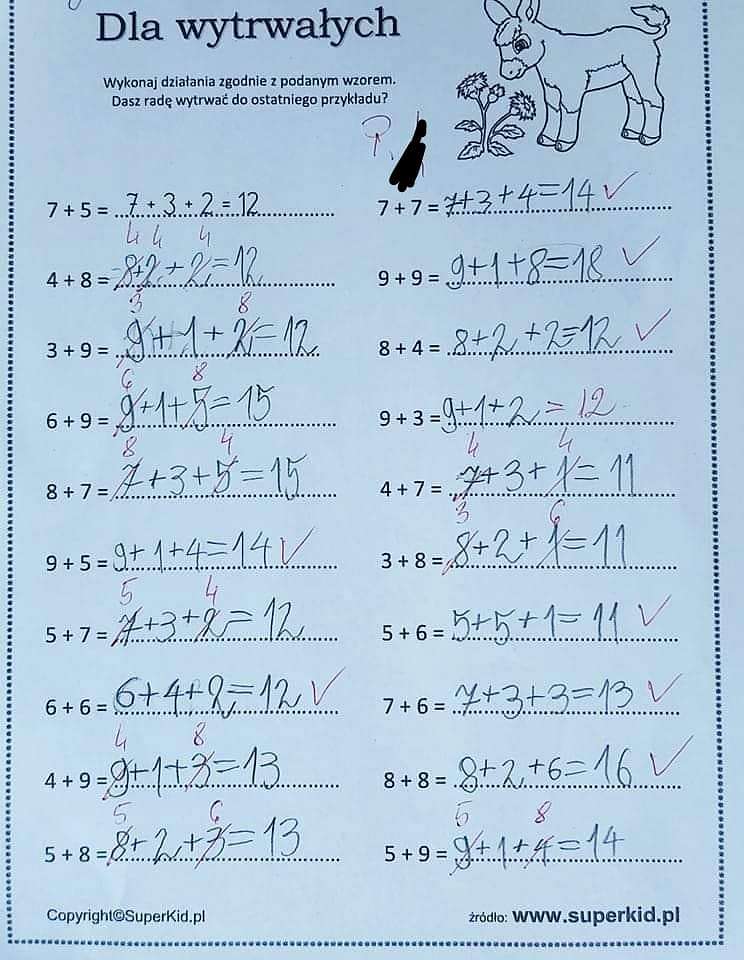 Dla wytrwałych
Wykonaj działania zgodnie z podanym wzorem.
Dasz radę wytrwać do ostatniego przykładu?
7 + 5 = 7 + 3 + 2 = 12
4 4 4
4 + 8 = 8+2+2=12
3 8
3 + 9 = 9+1+2=12
6 8
6 + 9 = 9+1+5=15
8 4
8 + 7 = 7+3+5=15
9 + 5 = 9+1+4=14 ✓
5 4
5 + 7 = 7+3+2=12
6 + 6 = 6+4+2=12 ✓
4 8
4 + 9 = 9+1+3=13
5 6
5 + 8 = 8+2+3=13
7 + 7 = 7+3+4=14 ✓
9 + 9 = 9+1+8=18 ✓
8 + 4 = 8+2+2=12 ✓
9 + 3 = 9+1+2=12
4 4
4 + 7 = 7+3+1=11
3 6
3 + 8 = 8+2+1=11
5 + 6 = 5+5+1=11 ✓
7 + 6 = 7+3+3=13 ✓
8 + 8 = 8+2+6=16 ✓
5 8
5 + 9 = 9+1+4=14
Copyright©SuperKid.pl
źródło: www.superkid.pl